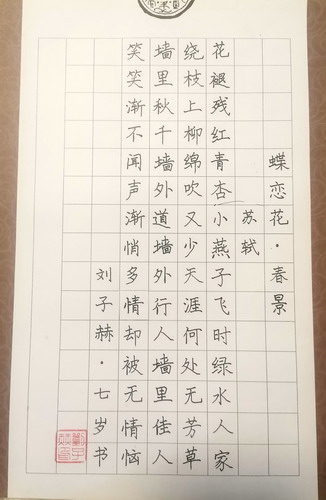 蝶恋花·春景
苏轼
花褪残红青杏小燕子飞时绿水人家
绕枝上柳绵吹又少天涯何处无芳草
墙里秋千墙外道墙外行人墙里佳人
笑笑渐不闻声渐悄多情却被无情恼
刘子赫·七岁书